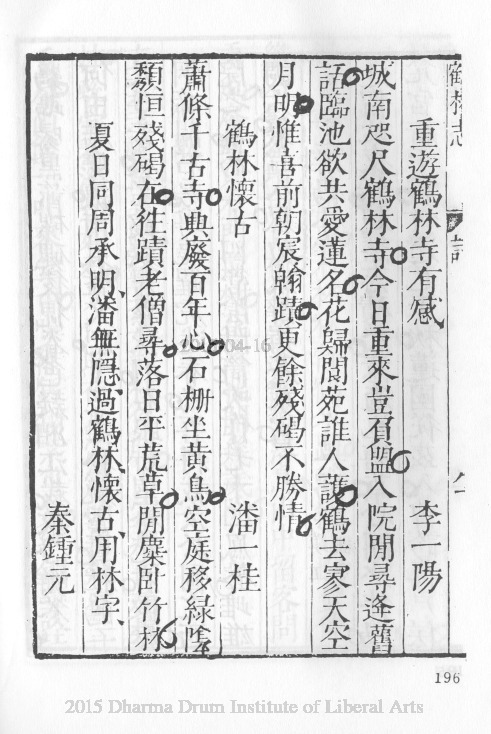 鶴林志
詩
重遊鶴林寺有感
李一陽
城南咫尺鶴林寺今日重來豈負盟入院閒尋逢舊
話臨池欲共愛蓮名花歸閬苑誰人護鶴去寥天空
月明惟喜前朝宸翰蹟更餘殘碣不勝情
鶴林懷古
潘一桂
蕭條千古寺興廢百年心石柵坐黃鳥空庭移綠陰
頹垣殘碣在往蹟老僧尋落日平荒草閒麋臥竹林
夏日同周承明潘無隱過鶴林懷古用林字
秦鍾元
196
2015 Dharma Drum Institute of Liberal Arts